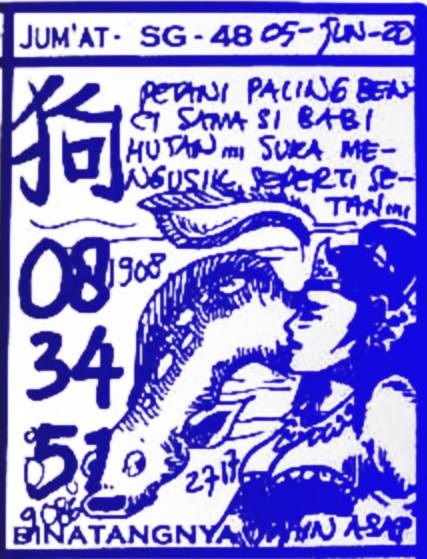 JUM'AT - SG - 48 05-JUN-20
狗
PETANI PALING BEN-
CI SAMA SI BABI
HUTAN SUKA ME-
NGUSIK SEPERTI SE-
TAN
08
1908
34
51
2717
BINATANGNYA ASAP